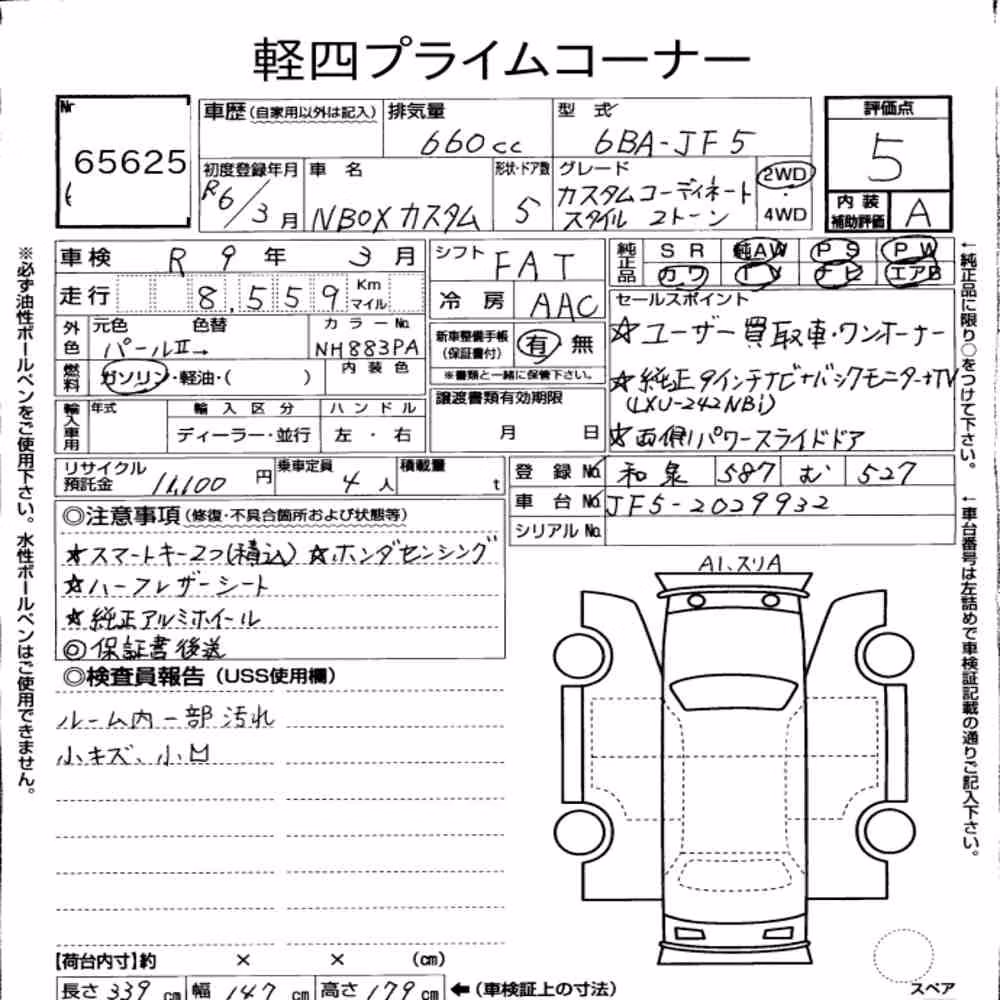 軽四プライムコーナー
Nr
65625
車歴(自家用以外は記入) 排気量 660cc 型式 6BA-JF5
評価点 5
初度登録年月 R6/3月 車名 NBOXカスタム 形状・ドア数 5 グレード カスタムコーディネートスタイル 2トーン 2WD・4WD
内装補助評価 A
車検 R9年 3月 シフト FAT 純正品 SR 純AW PS PW
走行 8,559 Km マイル 冷房 AAC カワ TV ナビ エアB
外色 元色 色替 カラーNo. 新車整備手帳(保証書付) 有 無 セールスポイント
パールⅡ→ NH883PA ※書類と一緒に保管下さい。 ☆ユーザー買取車・ワンオーナー
燃料 ガソリン・軽油・( ) 内装色 譲渡書類有効期限 ☆純正9インチナビ+バックモニター+TV
(LXU-242NBi)
輸入車用 年式 輸入区分 ハンドル 月 日 ☆両側パワースライドドア
ディーラー・並行 左・右
リサイクル預託金 11,100円 乗車定員 4人 積載量 t 登録No. 和泉 587 む 527
車台No. JF5-2029932
シリアルNo.
◎注意事項(修復・不具合箇所および状態等)
☆スマートキー2つ(積込) ☆ホンダセンシング
☆ハーフレザーシート
☆純正アルミホイール
◎保証書後送
◎検査員報告(USS使用欄)
ルーム内一部汚れ
小キズ、小凹
A1、スリA
【荷台内寸】約 × × (cm)
長さ339cm 幅147cm 高さ179cm ←(車検証上の寸法)
スペア
※必ず油性ボールペンをご使用下さい。水性ボールペンはご使用できません。
←純正品に限り○をつけて下さい。
←車台番号は左詰めで車検証記載の通りご記入下さい。